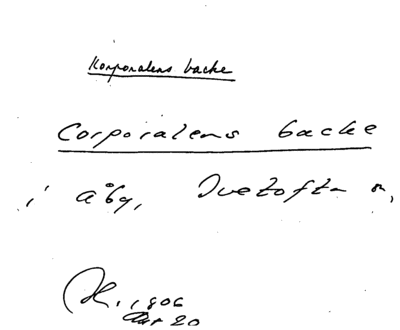 Korporalens backe
Corporalens backe
i Åby, Ivetofta sn,
1806
Akt 20